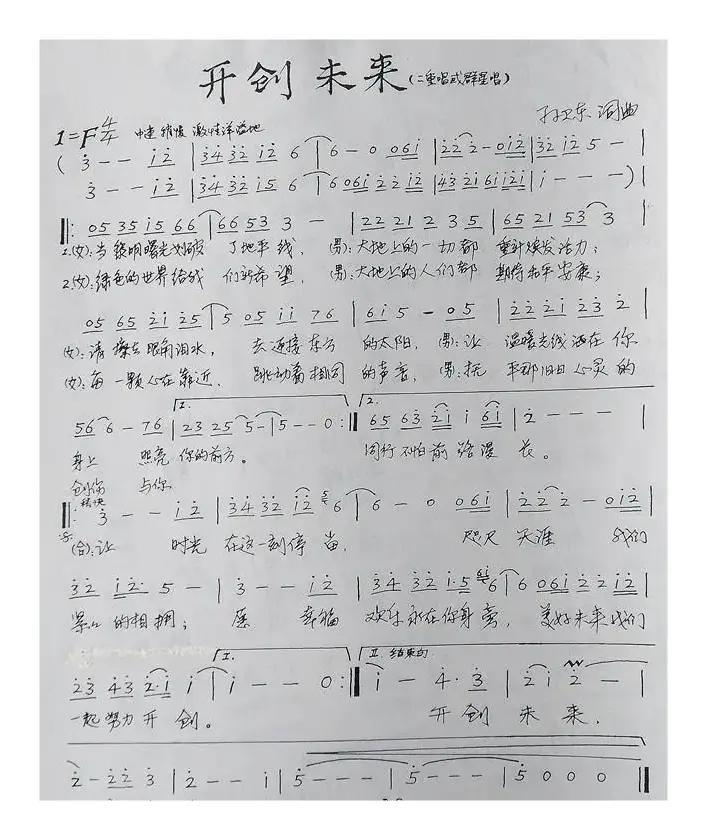 开创未来(二重唱或群星唱)
1=F 4/4 中速 稍慢 激情洋溢地 孙卫东 词曲
( 3 - - 1 2 | 3 4 3 2 1 2 6 | 6 - 0 0 6 1 | 2 2 2 - 0 1 2 | 3 2 1 2 5 - |
3 - - 1 2 | 3 4 3 2 1 5 6 | 6 0 6 1 2 2 1 2 | 4 3 2 1 6 1 1 2 1 | 1 - - - )
‖: 0 5 3 5 1 5 6 6 | 6 6 5 3 3 - | 2 2 2 1 2 3 5 | 6 5 2 1 5 3 3 |
1.(女):当黎明曙光划破 了地平线, (男):大地上的一切都 重新焕发活力;
2.(女):绿色的世界给我 们新希望, (男):大地上的人们都 期待和平安康;
0 5 6 5 2 1 2 5 | 5 0 5 1 1 7 6 | 6 1 5 - 0 5 | 2 2 2 1 2 3 2 |
(女):请擦去眼角泪水, 去迎接东方 的太阳, (男):让 温暖光线洒在你
(女):每一颗心在靠近, 跳动着相同 的声音, (男):抚 平那旧日心灵的
1. 2.
5 6 6 - 7 6 | 2 3 2 5 5 - | 5 - - 0 :‖ 6 5 6 3 2 1 1 6 1 | 2 - - - |
身上 照亮 你的前方。 同行不怕前路漫 长。
创伤 与你
稍快
‖: 3 - - 1 2 | 3 4 3 2 1 2 6 | 6 - 0 0 6 1 | 2 2 2 - 0 1 2 |
(合):让 时光 在这一刻停 留, 咫尺 天涯 我们
3 2 1 2· 5 - | 3 - - 1 2 | 3 4 3 2 1·5 6 | 6 0 6 1 2 2 1 2 |
紧紧的相拥; 愿 幸福 欢乐永在你身旁, 美好未来我们
I. II. 结束句
2 3 4 3 2·1 1 | 1 - - 0 :‖ 1 - 4· 3 | 2 1 2 - |
一起努力开 创。 开 创 未 来,
2 - 2 2 3 | 2 - - 1 | 5 - - - | 5 - - - | 5 0 0 0 ‖